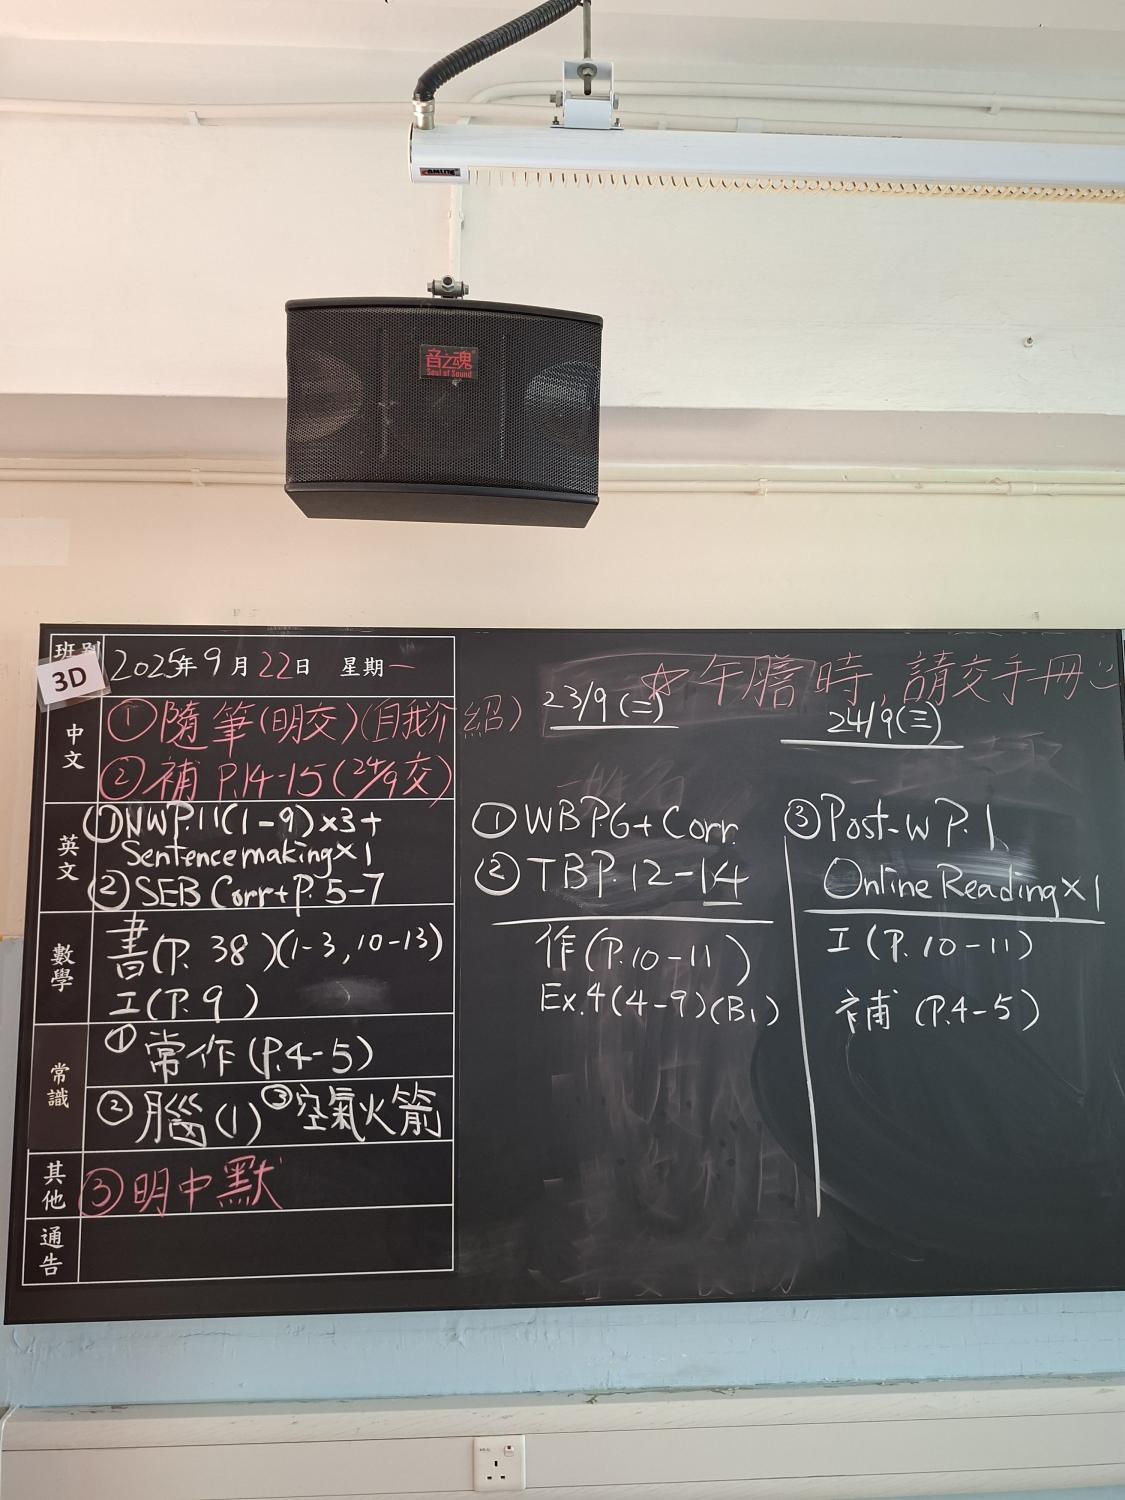 COMLITE
音之魂
Soul of Sound
班別
3D
2025年9月22日 星期一
中文
①隨筆(明交)(自我介紹)
②補 P.14-15(24/9交)
英文
①NWP.11(1-9)×3+
Sentence making×1
②SEB Corr+P. 5-7
數學
書(P. 38)(1-3, 10-13)
工(P. 9)
常識
①常作(P.4-5)
②腦(1) ③空氣火箭
其他
③明中默
通告
☆午膳時,請交手冊
23/9(二)
①WBP.6+Corr.
②TBP. 12-14
作(P.10-11)
Ex.4(4-9)(B1)
24/9(三)
③Post-W P. 1
Online Reading×1
工(P.10-11)
補(P.4-5)